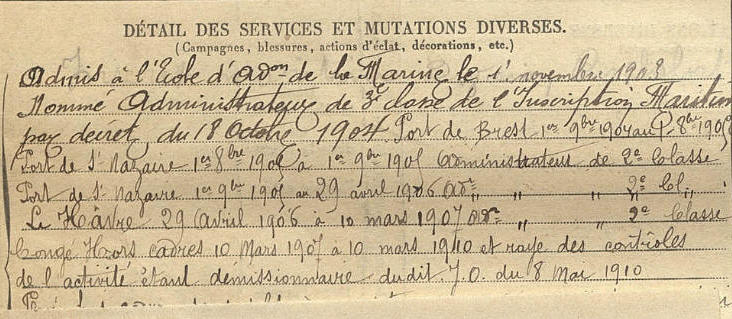 DÉTAIL DES SERVICES ET MUTATIONS DIVERSES.
(Campagnes, blessures, actions d'éclat, décorations, etc.)
Admis à l'Ecole d'Adon de la Marine le 1er novembre 1903
Nommé Administrateur de 3e classe de l'Inscription Maritim
par décret du 18 Octobre 1904. Port de Brest 1er 9bre 1904 au 1er 8bre 1905
Port de St Nazaire 1er 8bre 1905 à 1er 9bre 1905 Administrateur de 2e Classe
Port de St Nazaire 1er 9bre 1905 au 29 avril 1906 Adr " " 2e Cl "
Le Hâvre 29 Avril 1906 à 10 mars 1907 Adr " " 2e Classe
Congé Hors cadres 10 Mars 1907 à 10 mars 1910 et rayé des contrôles
de l'activité étant démissionnaire dudit. J.O. du 8 Mai 1910